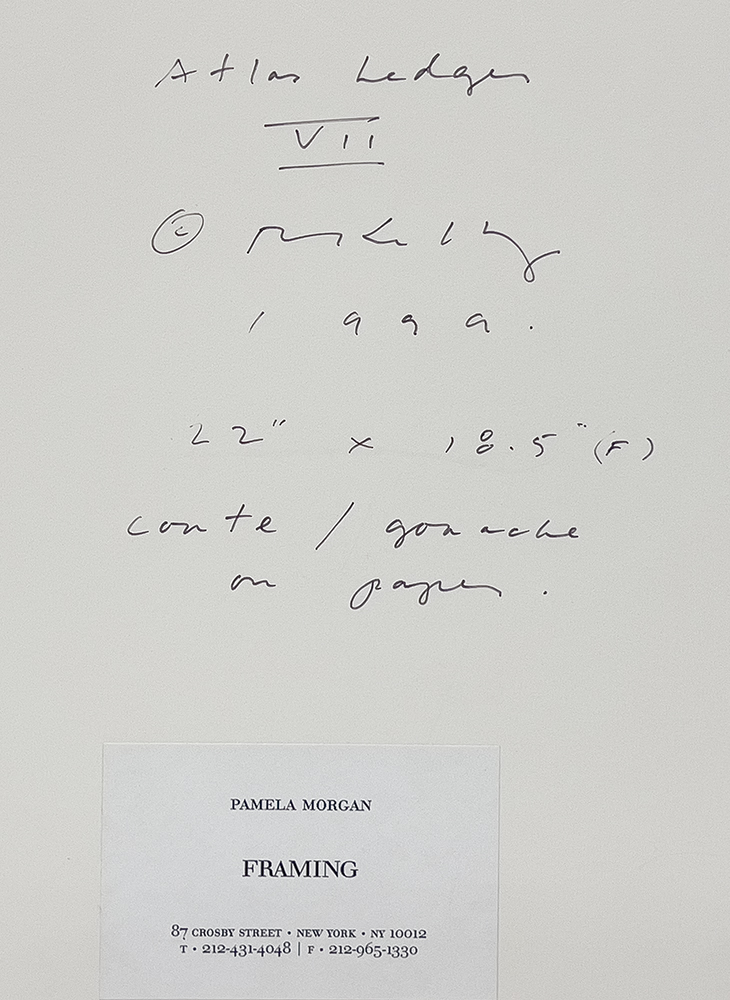 Atlas Ledger
VII
©
1999.
22" x 18.5" (F)
conte / gouache
on paper.
PAMELA MORGAN
FRAMING
87 CROSBY STREET • NEW YORK • NY 10012
T • 212-431-4048 | F • 212-965-1330